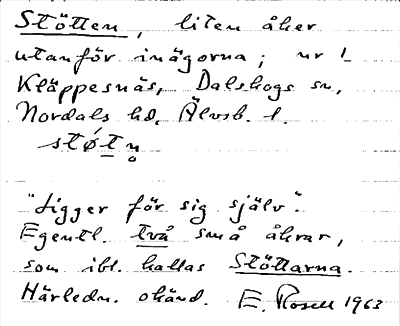 Stötten, liten åker
utanför inägorna; nr 1
Kläppesnäs, Dalskogs sn,
Nordals hd, Älvsb. l.
støtn̥
"Ligger för sig själv".
Egentl. två små åkrar,
som ibl. kallas Stöttarna.
Härledn. okänd. E. Rosell 1963